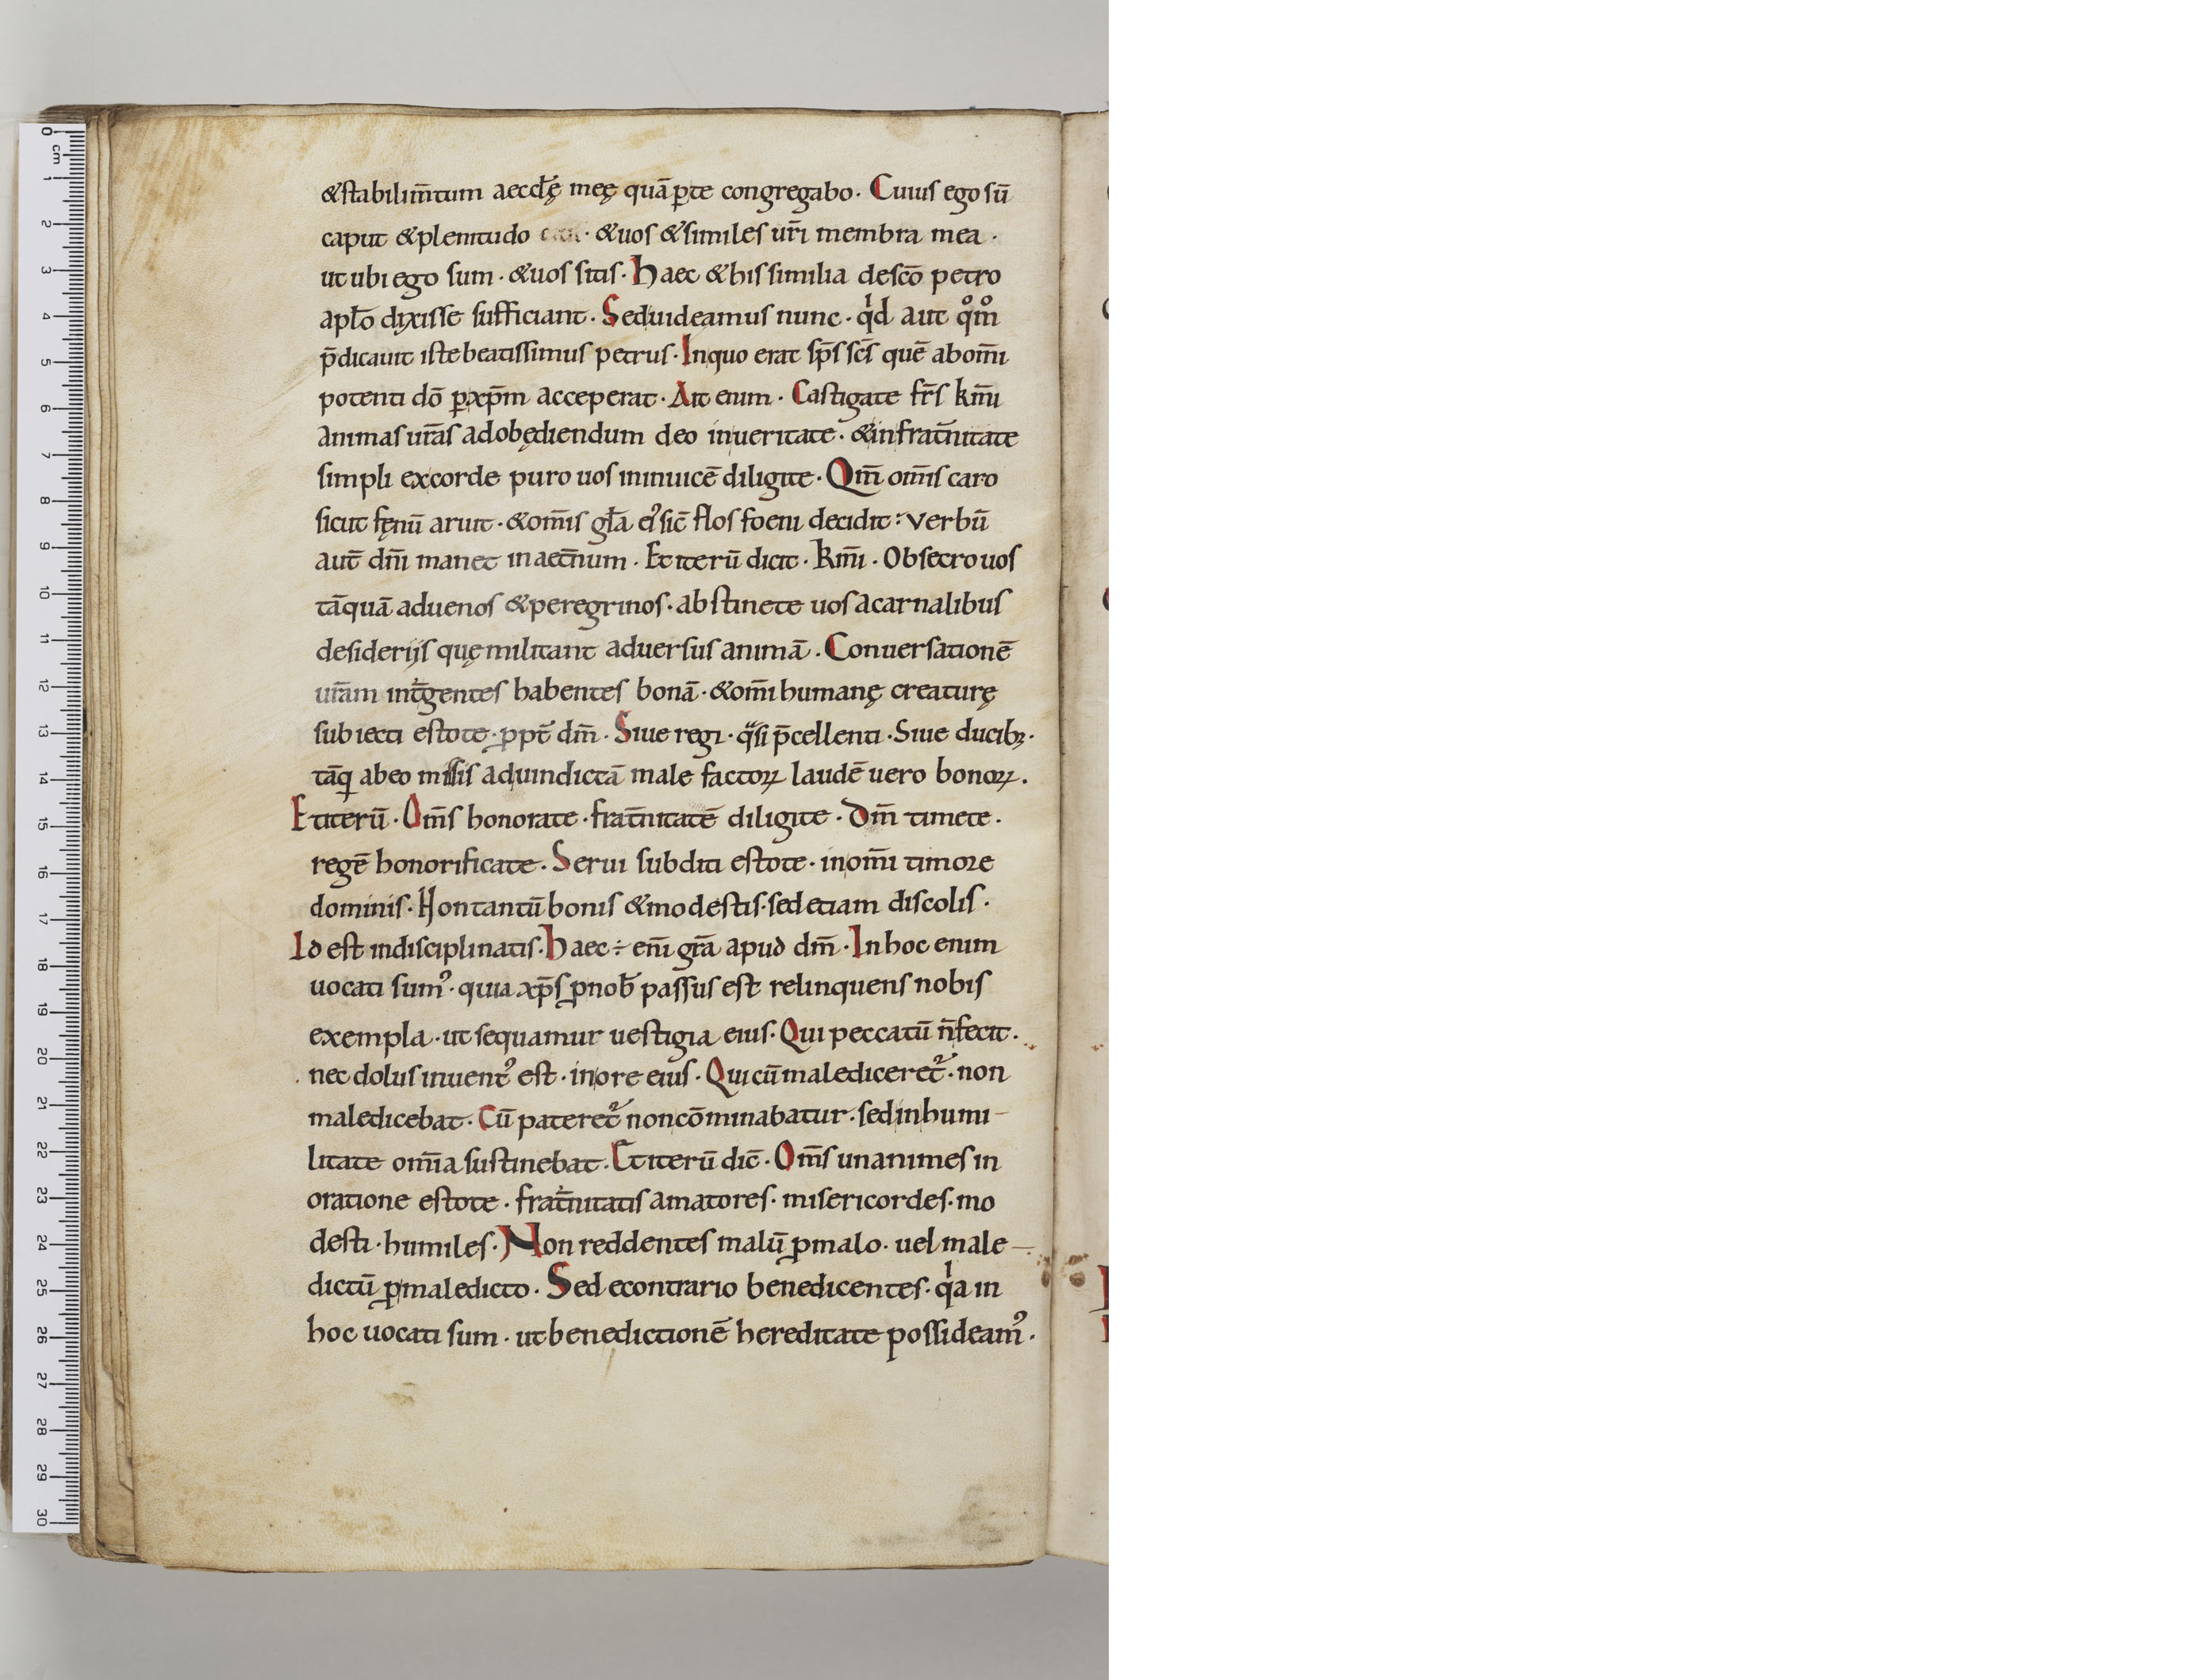 &stabilim̄tum aeccłę meę quā ꝑte congregabo. Cuius ego sū
caput &plenitudo · &uos &similes ur̄i membra mea ·
ut ubi ego sum · &uos sitis · Haec &his similia de sc̄o petro
apłο dixisse sufficiant · Sed uideamus nunc · qͥd aut qͦmͦ
p̄dicauit iste beatissimus petrus · In quo erat sp̄s sc̄s quē ab om̄i
potenti dō ꝑ xp̄m acceperat · Ait enim · Castigate fr̄s km̄i
animas ur̄as ad obędiendum deo in ueritate · &in frat̄nitate
simpli ex corde puro uos in inuicē diligite · Qm̄ om̄is caro
sicut fęnū aruit · &om̄is gła eꝰ sic̄ flos foeni decidit : verbū
aut̄ dn̄i manet in aet̄num · Et iterū dicit · Km̄i · Obsecro uos
tāquā aduenos &peregrinos · abstinete uos a carnalibus
desiderijs quę militant aduersus animā · Conuersationē
ur̄am int̄ gentes habentes bonā · &om̄i humanę creaturę
subiecti estote · ꝓpt̄ dm̄ · Siue regi · qᵃsi p̄cellenti · Siue ducibꝫ ·
tāꝗ ab eo missis ad uindictā male factoꝝ laudē uero bonoꝝ .
Et iterū · Om̄s honorate · frat̄nitatē diligite · Dm̄ timete .
regē honorificate · Serui subditi estote · in om̄i timore
dominis · Non tantū bonis &modestis · sed etiam discolis ·
Id est indisciplinatis · Haec ÷ eni̅ gr̄a apud dm̄ · In hoc enim
uocati sumꝰ · quia xp̄s ꝓ nob̄ passus est relinquens nobis
exempla · ut sequamur uestigia eius · Qui peccatū n̄ fecit .
nec dolus inuentꝰ est · in ore eius · Qui cū malediceret᷑ · non
maledicebat · Cū pateret᷑ non cōminabatur · sed in humi-
litate om̄ia sustinebat · Et iterū dic̄ · Om̄s unanimes in
oratione estote · frat̄nitatis amatores · misericordes · mo
desti · humiles · Non reddentes malū ꝓ malo · uel male-
dictū ꝓ maledicto · Sed econtrario benedicentes · qͥa in
hoc uocati sum · ut benedictionē hereditate possideamꝰ ·